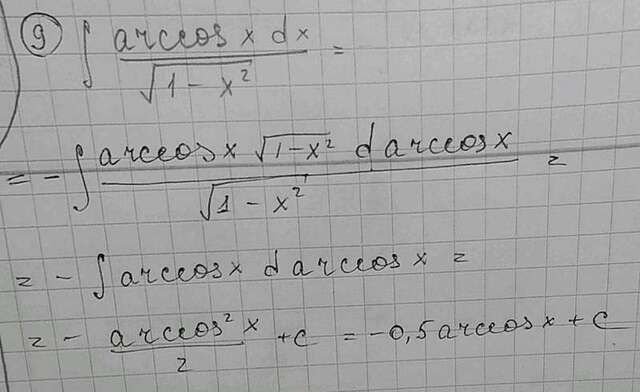 9) ∫ arccos x dx / √(1 - x²) =
= - ∫ arccos x √(1-x²) d arccos x / √(1 - x²) =
= - ∫ arccos x d arccos x =
= - arccos² x / 2 + c = -0,5 arccos x + c